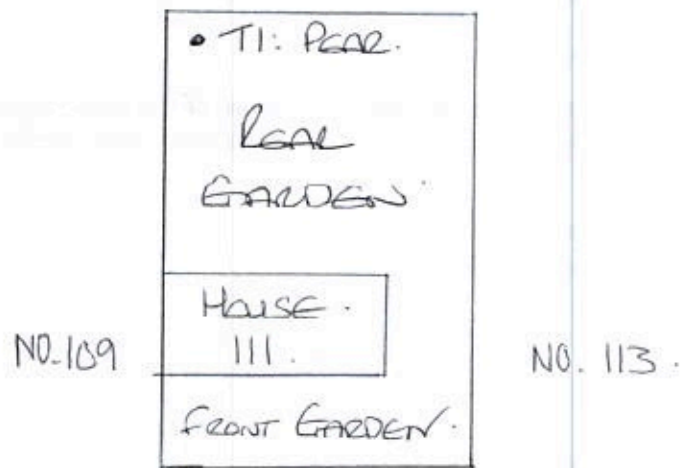 • T1: PEAR.
REAR
GARDEN
HOUSE.
111.
NO.109
NO. 113.
FRONT GARDEN.